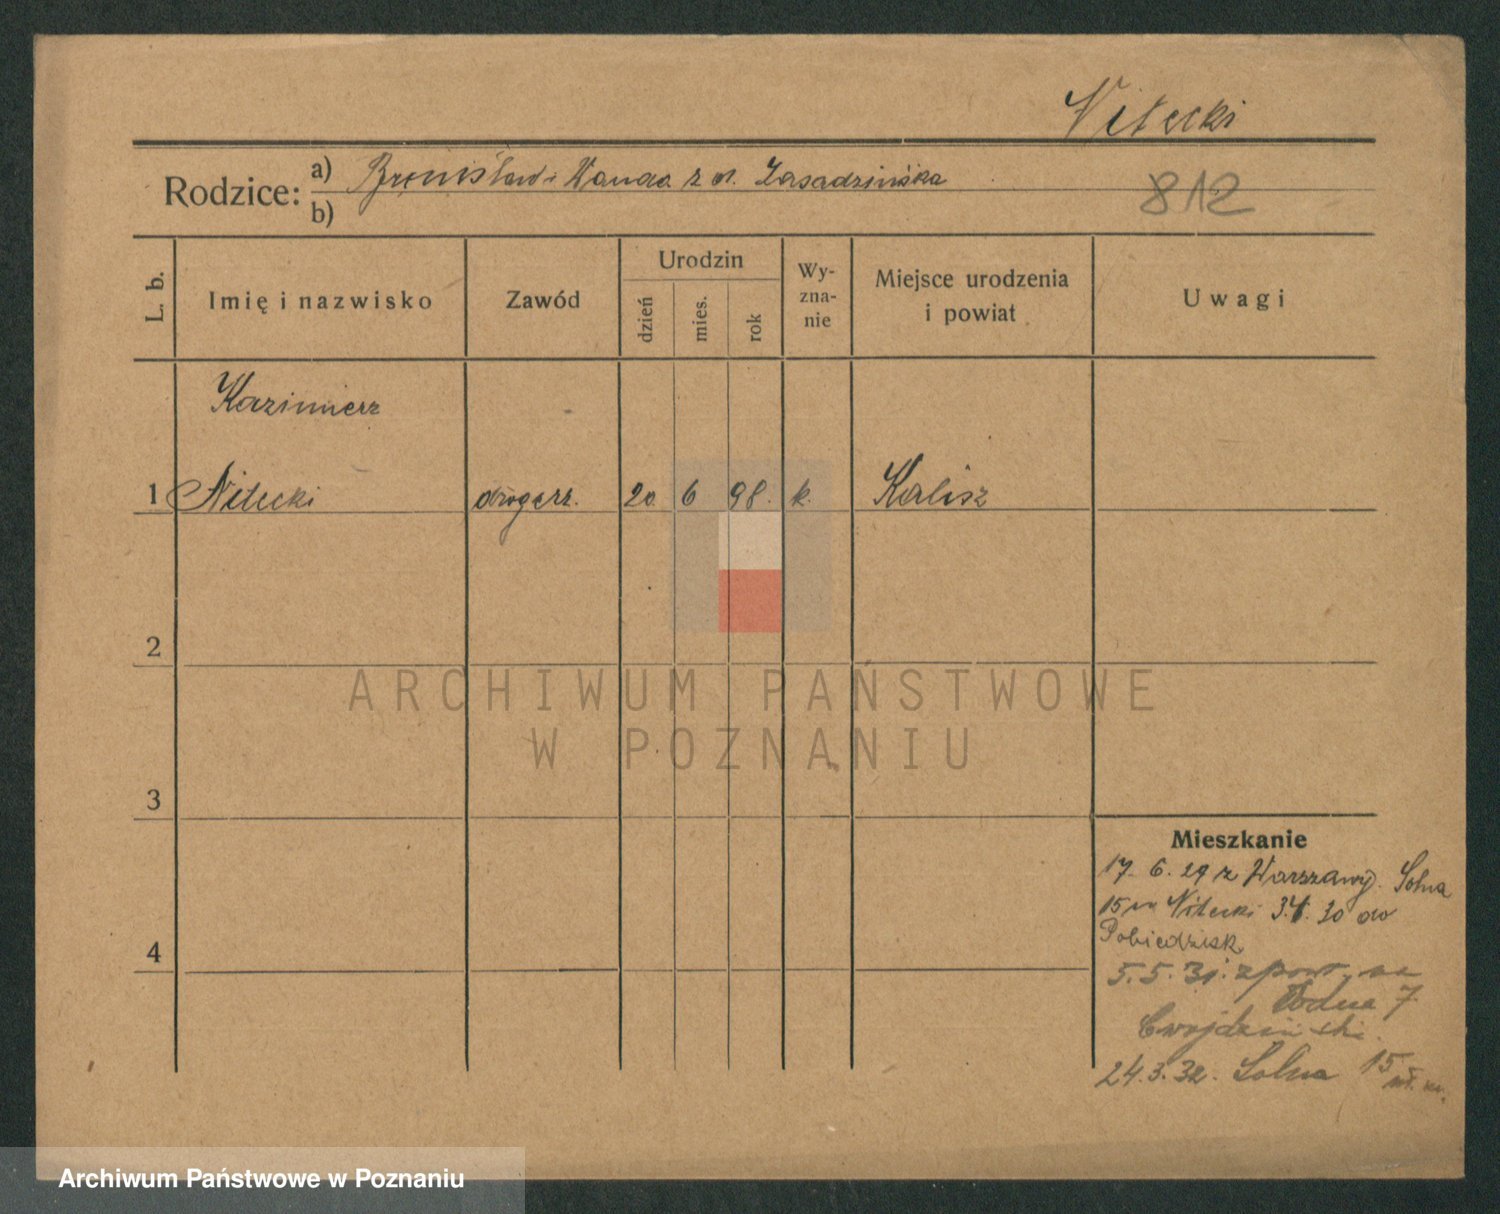 Nitecki
Rodzice: a) Bronisław i Wanda z d. Zasadzińska
b)
812
L. b.
Imię i nazwisko
Zawód
Urodzin
dzień
mies.
rok
Wy-
zna-
nie
Miejsce urodzenia
i powiat
Uwagi
Kazimierz
1 Nitecki drogerz. 20 6 98. k. Kalisz
2
3
4
ARCHIWUM PAŃSTWOWE
W POZNANIU
Mieszkanie
17. 6. 29 z Warszawy. Solna
15 Nitecki 3.4.30 do
Pobiedzisk
5.5.31. z powr. na
Wodna 7
Cwojdziński.
24.3.32. Solna 15
Archiwum Państwowe w Poznaniu